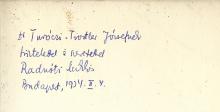 Turóczi-Trostler Józsefnek
tisztelettel és szeretettel
Radnóti Miklós
Budapest, 1934. II. 4.